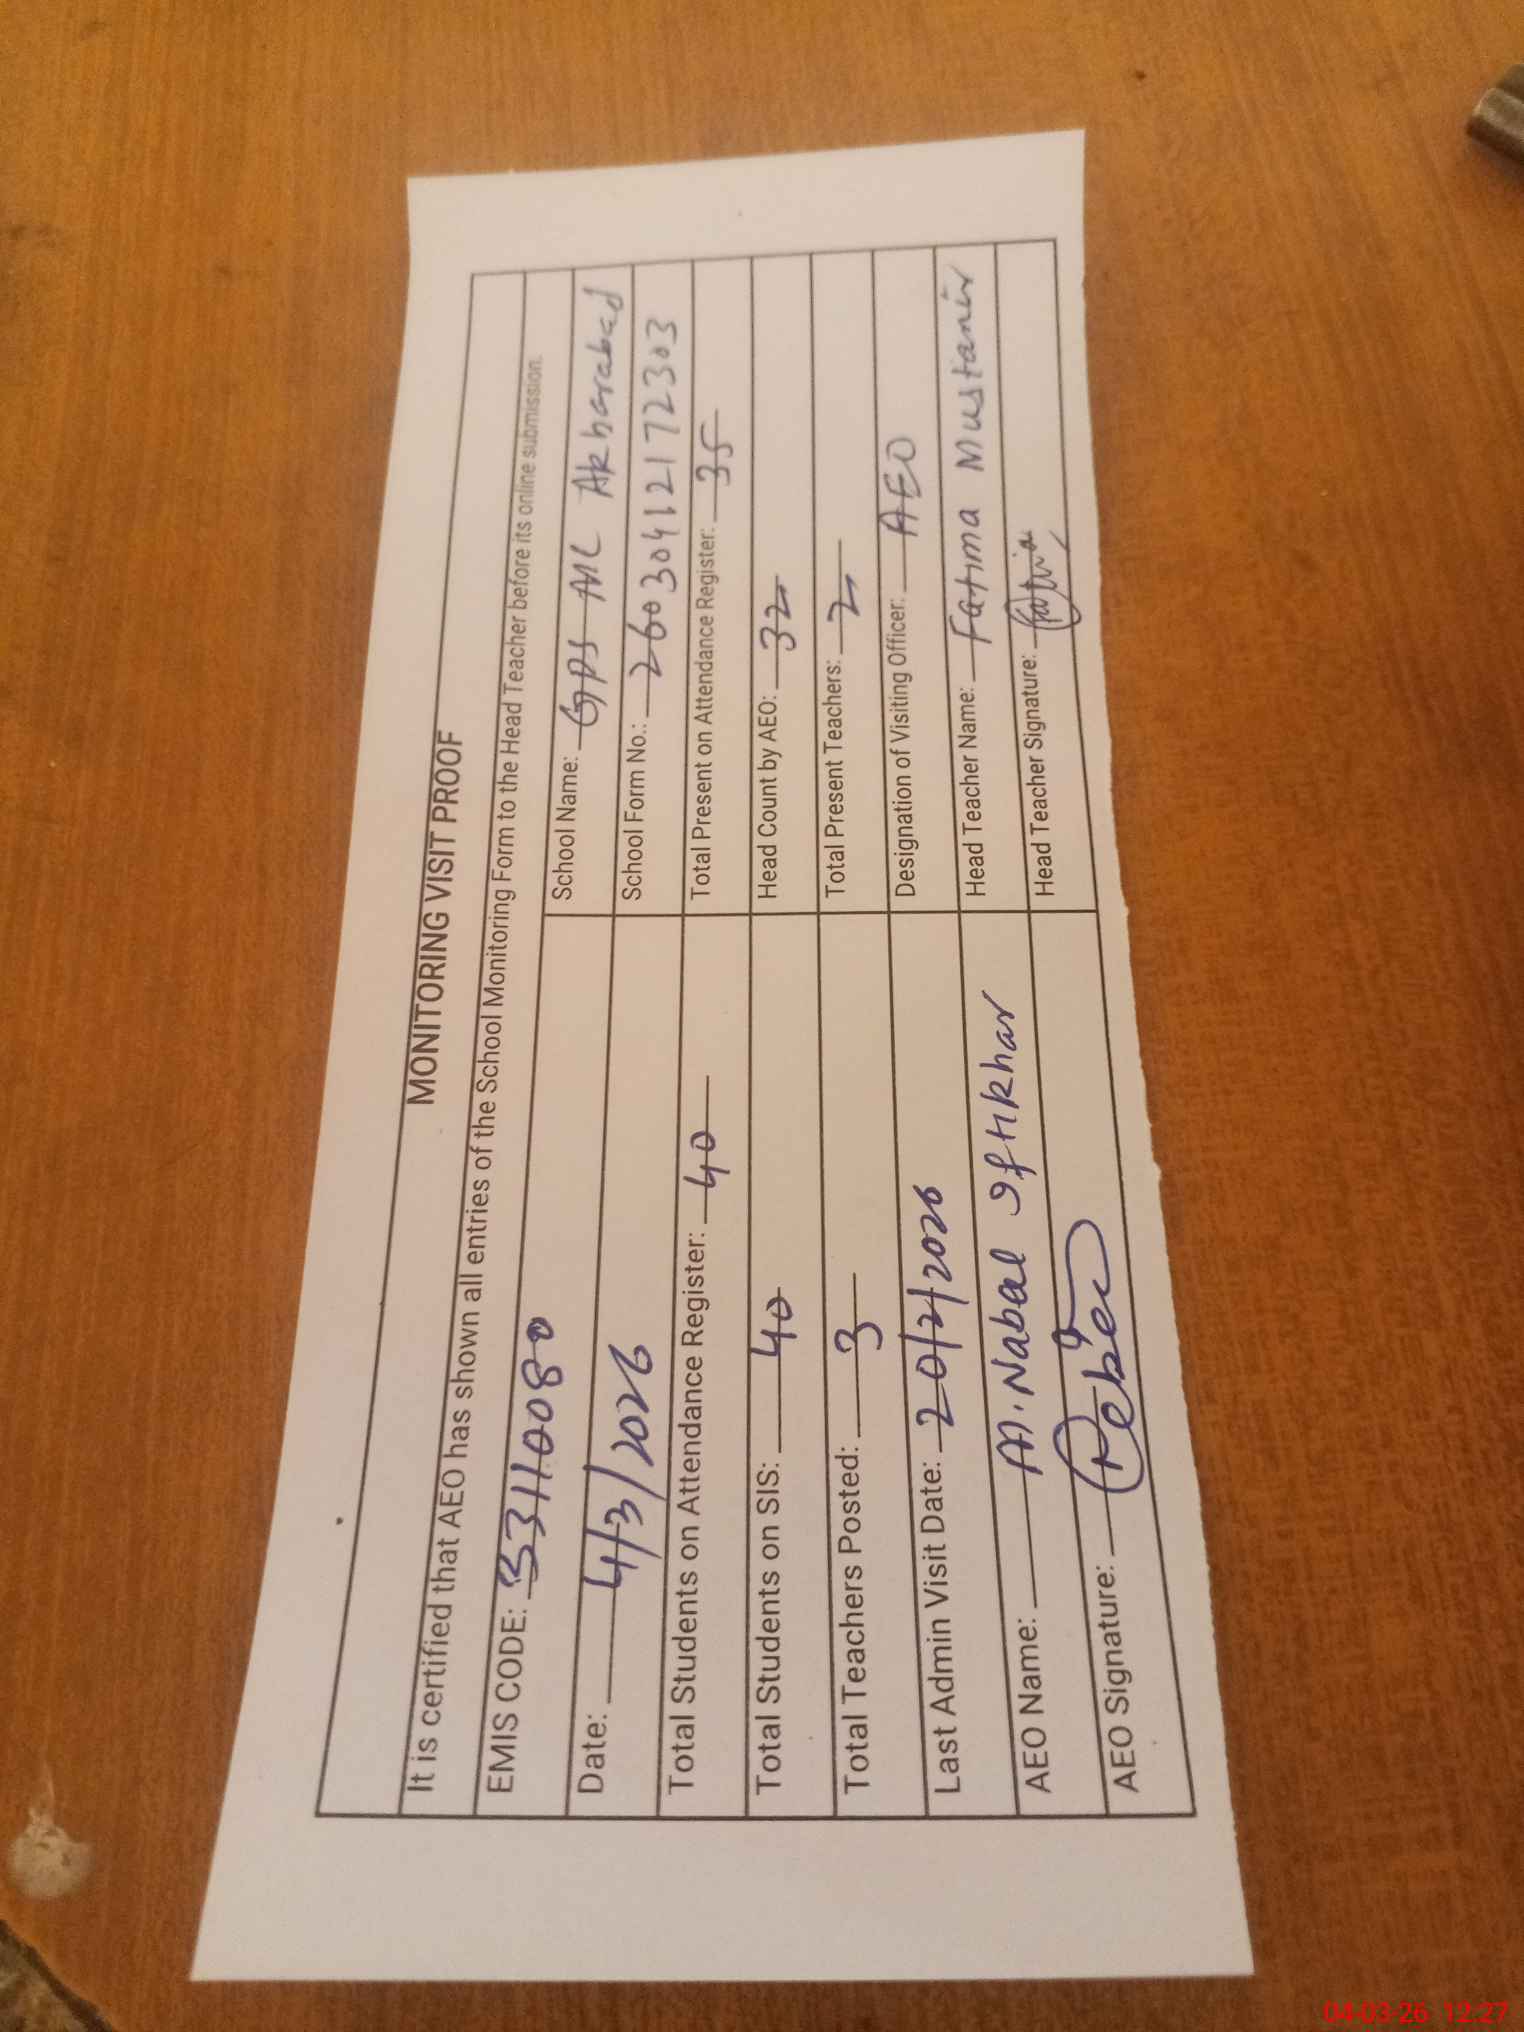 MONITORING VISIT PROOF
It is certified that AEO has shown all entries of the School Monitoring Form to the Head Teacher before its online submission.
EMIS CODE: 33110080
School Name: GPS ML Akbarabad
Date: 4/3/2026
School Form No.: 26030412172303
Total Students on Attendance Register: 40
Total Present on Attendance Register: 35
Total Students on SIS: 40
Head Count by AEO: 32
Total Teachers Posted: 3
Total Present Teachers: 2
Last Admin Visit Date: 20/2/2026
Designation of Visiting Officer: AEO
AEO Name: M. Nabael Iftikhar
Head Teacher Name: Fatima Mustanir
AEO Signature:
Head Teacher Signature:
04-03-26 12:27